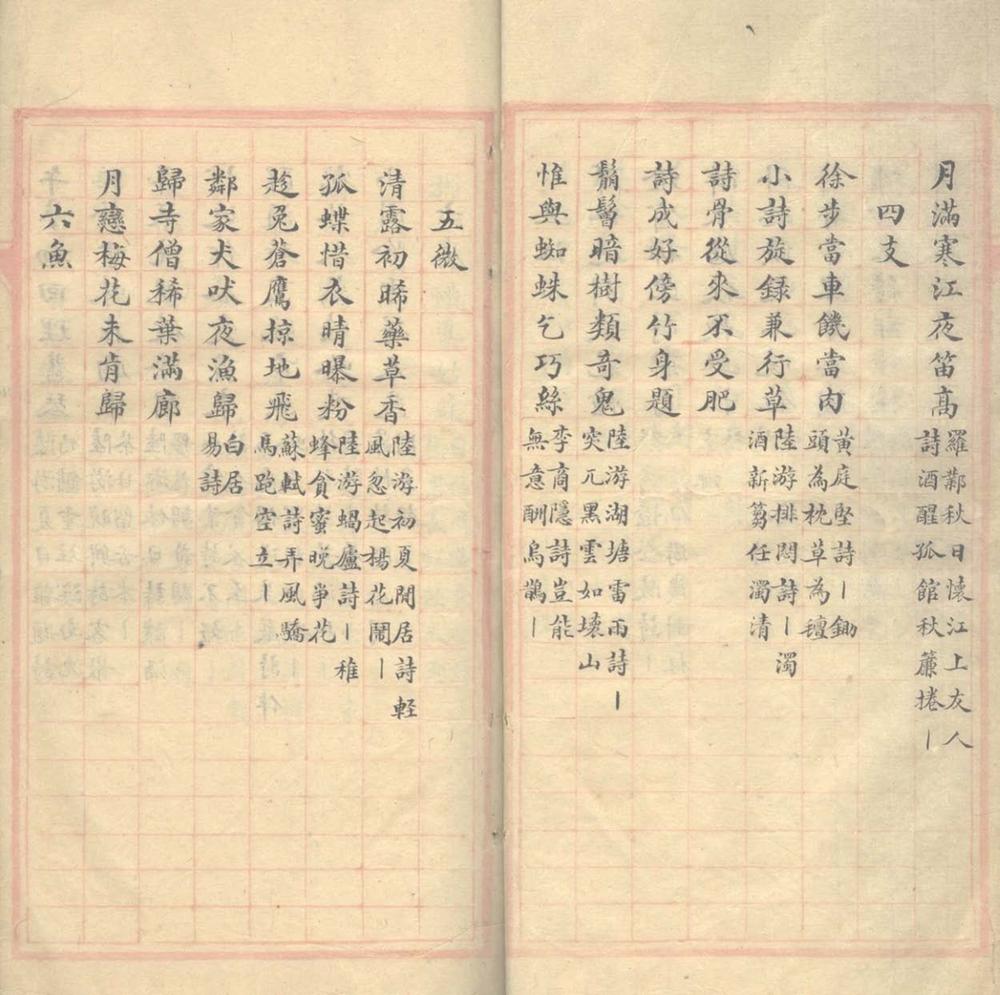 月滿寒江夜笛高 羅鄴秋日懷江上友人詩酒醒孤館秋簾捲丨
四支
徐步當車饑當肉 黃庭堅詩丨鋤頭為枕草為氊
小詩旋録兼行草 陸游排悶詩丨濁酒新篘任濁清
詩骨從來不受肥
詩成好傍竹身題
鬅鬙暗樹類奇鬼 陸游湖塘雷雨詩丨突兀黑雲如壞山
惟與蜘蛛乞巧絲 李商隱詩豈能無意酬烏鵲丨
五微
清露初晞藥草香 陸游初夏閒居詩輕風忽起楊花鬧丨
孤蝶惜衣晴曝粉 陸游蝸廬詩丨稚蜂貪蜜晚爭花
趁兔蒼鷹掠地飛 蘇軾詩弄風驕馬跑空立丨
鄰家犬吠夜漁歸 白居易詩
歸寺僧稀葉滿廊
月戀梅花未肯歸
六魚